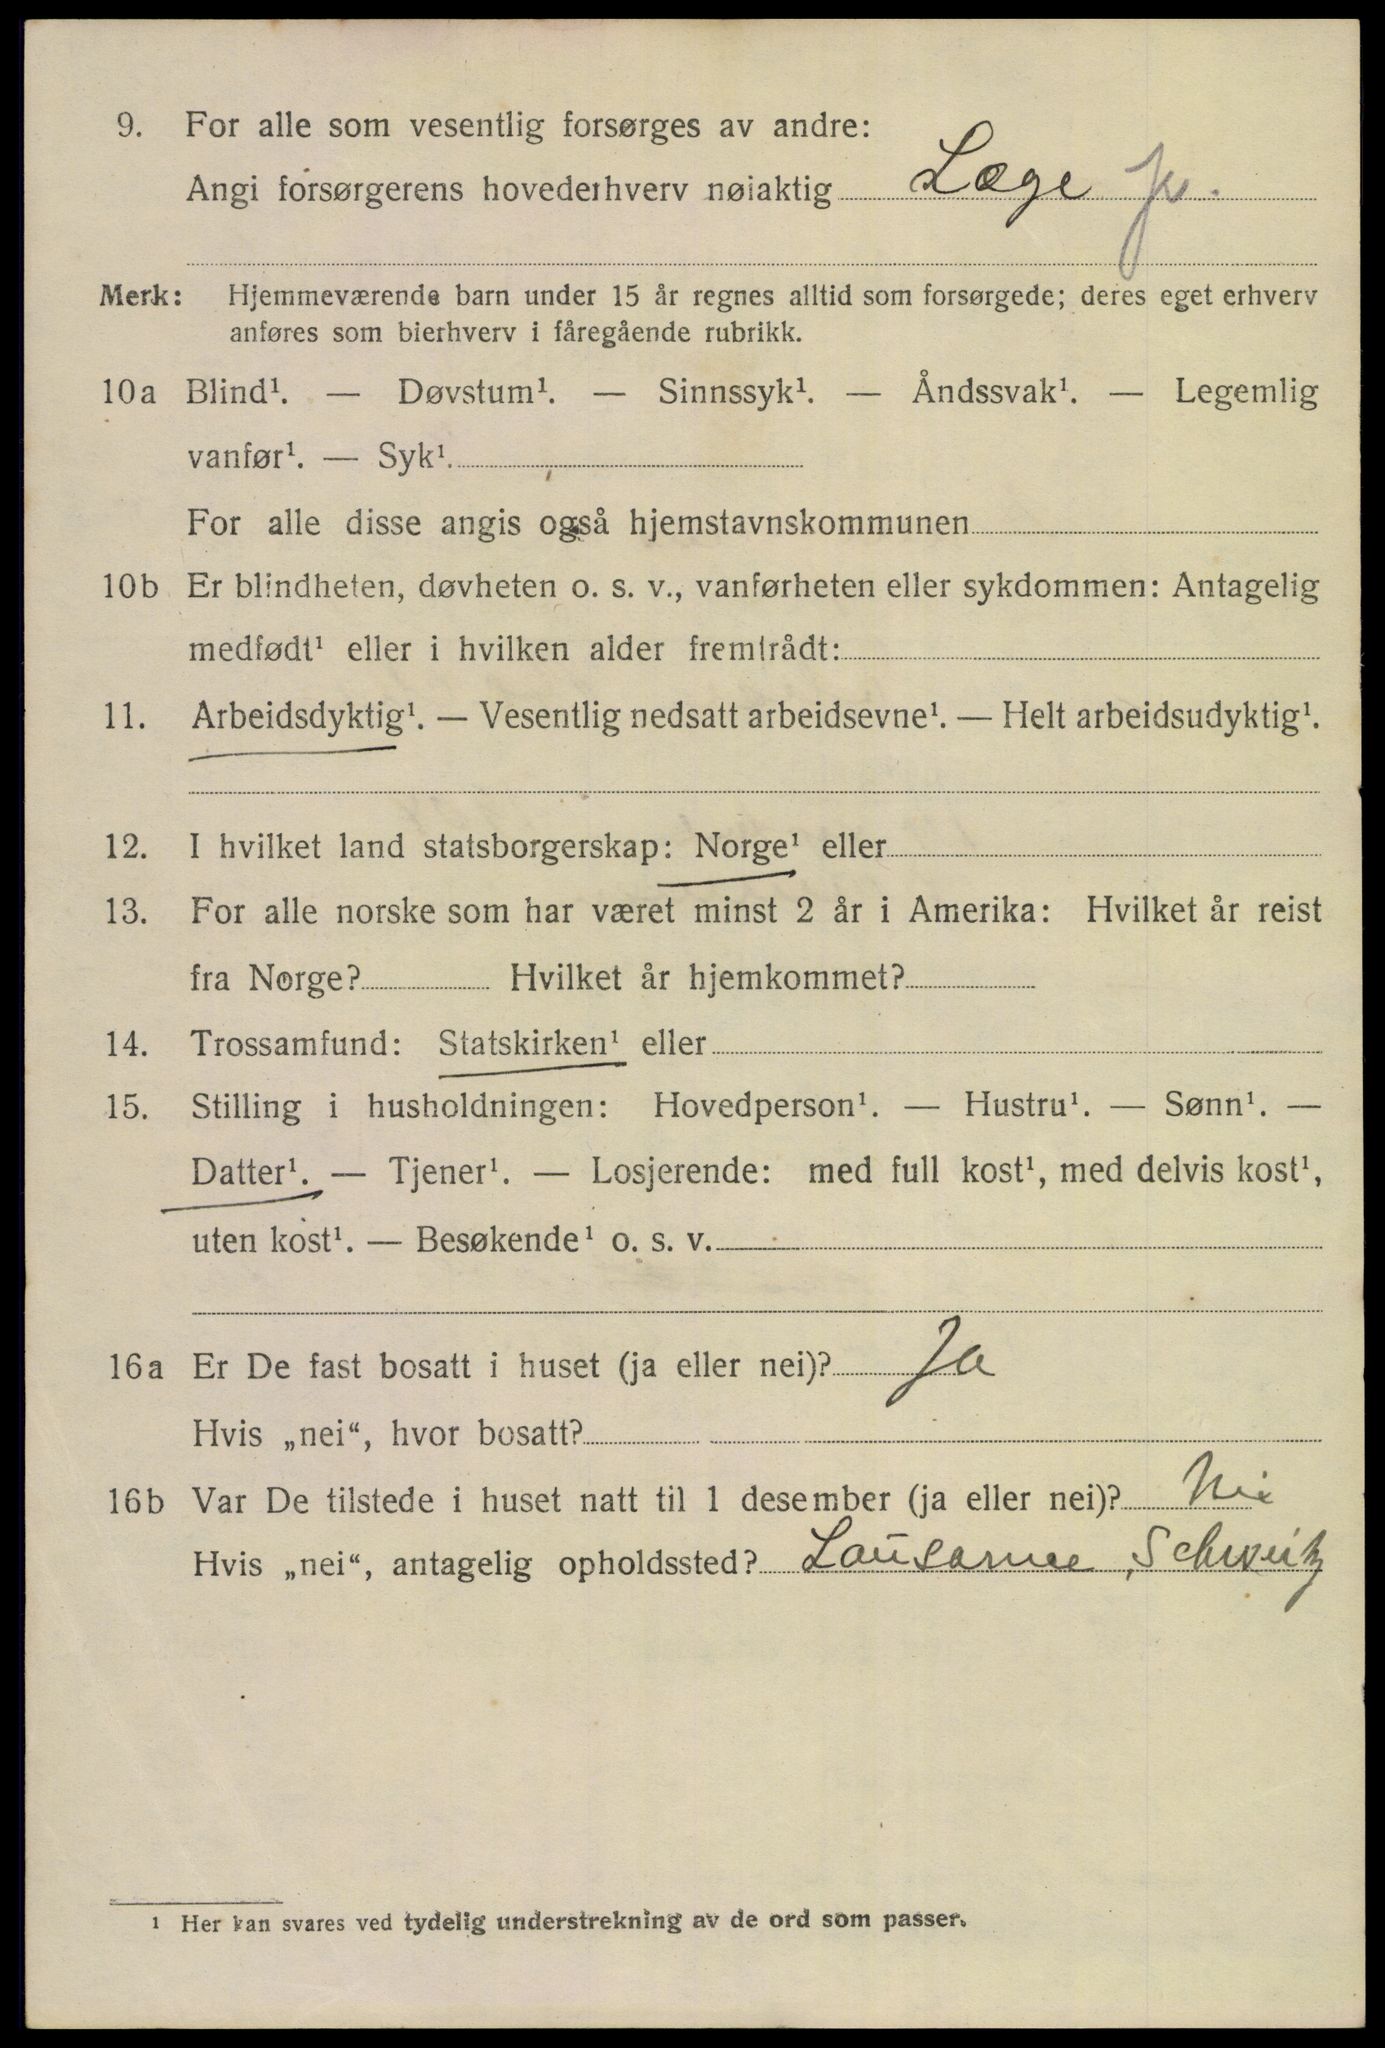 9. For alle som vesentlig forsørges av andre:
Angi forsørgerens hovederhverv nøiaktig Læge
Merk: Hjemmeværende barn under 15 år regnes alltid som forsørgede; deres eget erhverv
anføres som bierhverv i fåregående rubrikk.
10a Blind¹. — Døvstum¹. — Sinnssyk¹. — Åndssvak¹. — Legemlig
vanfør¹. — Syk¹.
For alle disse angis også hjemstavnskommunen
10b Er blindheten, døvheten o. s. v., vanførheten eller sykdommen: Antagelig
medfødt¹ eller i hvilken alder fremtrådt:
11. Arbeidsdyktig¹. — Vesentlig nedsatt arbeidsevne¹. — Helt arbeidsudyktig¹.
12. I hvilket land statsborgerskap: Norge¹ eller
13. For alle norske som har været minst 2 år i Amerika: Hvilket år reist
fra Norge? Hvilket år hjemkommet?
14. Trossamfund: Statskirken¹ eller
15. Stilling i husholdningen: Hovedperson¹. — Hustru¹. — Sønn¹. —
Datter¹. — Tjener¹. — Losjerende: med full kost¹, med delvis kost¹,
uten kost¹. — Besøkende¹ o. s. v.
16a Er De fast bosatt i huset (ja eller nei)? Ja
Hvis „nei“, hvor bosatt?
16b Var De tilstede i huset natt til 1 desember (ja eller nei)? Nei
Hvis „nei“, antagelig opholdssted? Lausanne, Schweitz
¹ Her kan svares ved tydelig understrekning av de ord som passer.